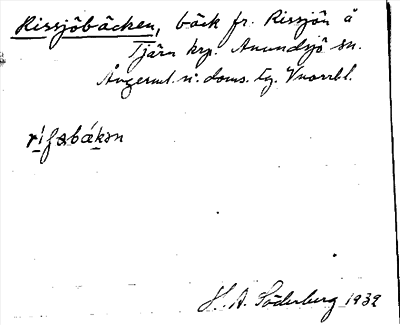 Rissjöbäcken, bäck fr. Rissjön å
Tjärn krp. Anundsjö sn.
Ångerml. n. doms. tg. Vnorrl.
ri̱ʃəbákən
H. A. Söderberg 1932